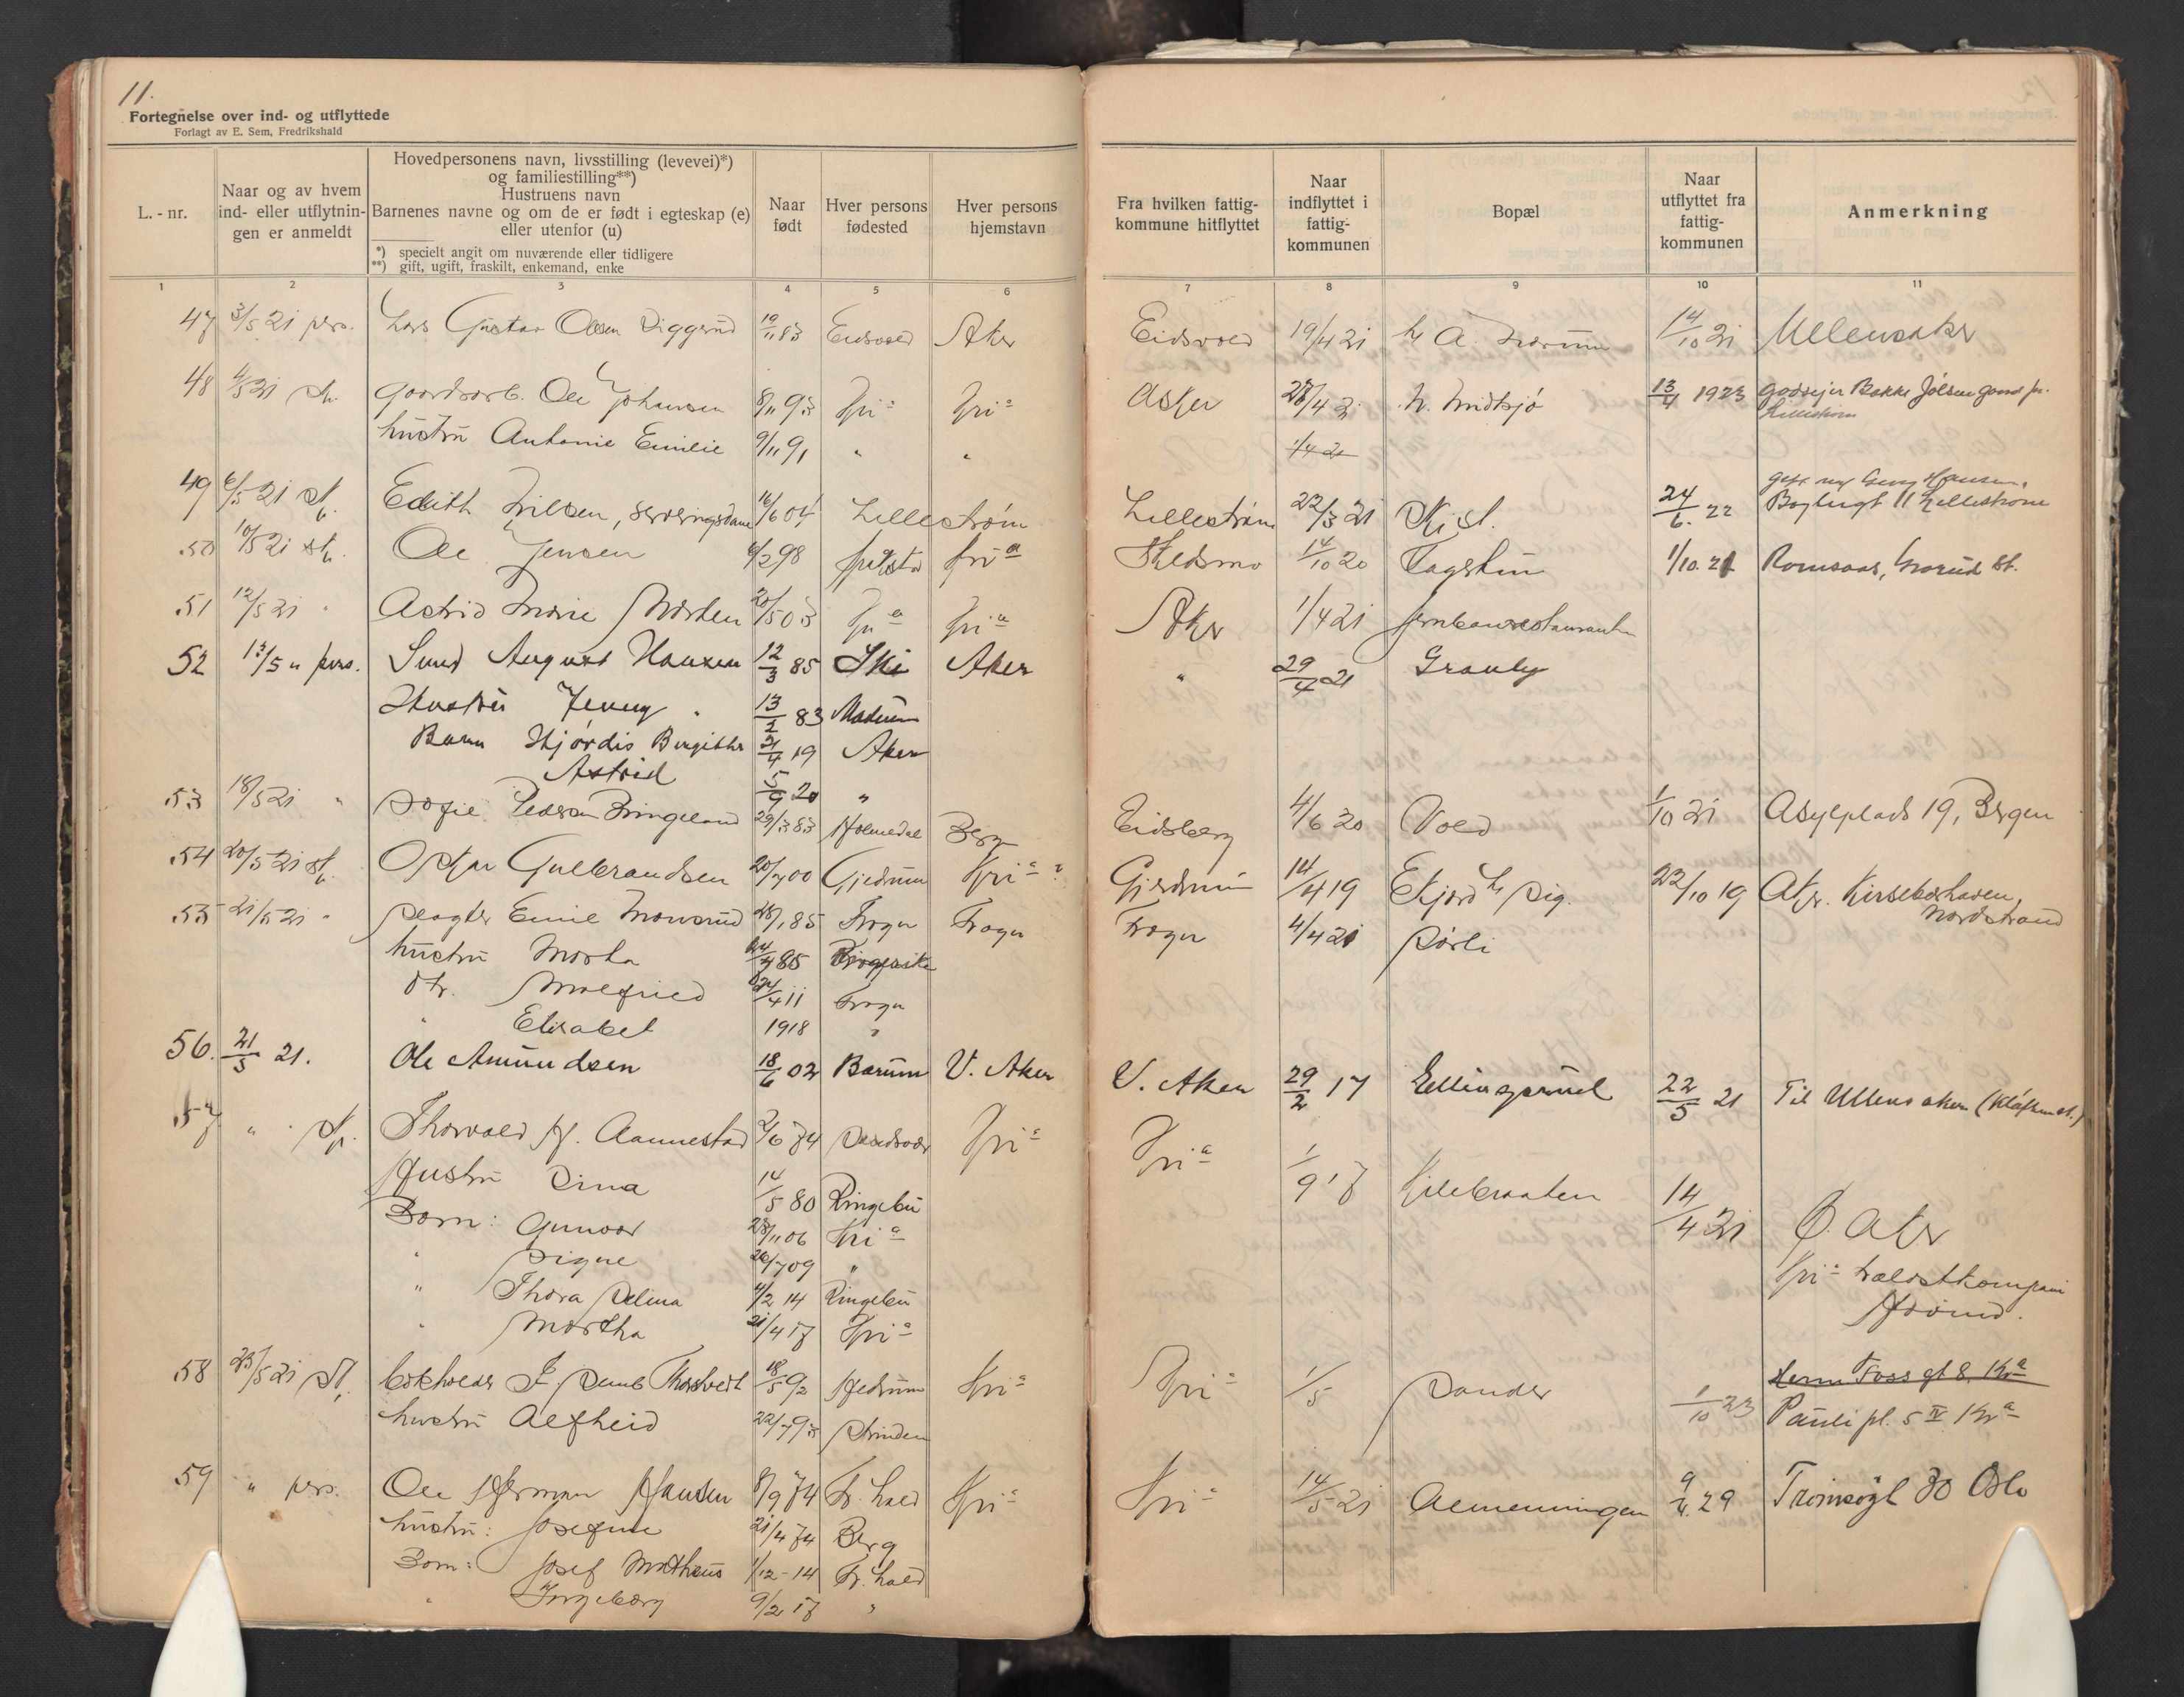 11.
Fortegnelse over ind- og utflyttede
Forlagt av E. Sem, Fredrikshald
L.-nr.
Naar og av hvem
ind- eller utflytnin-
gen er anmeldt
Hovedpersonens navn, livsstilling (levevei)*)
og familiestilling**)
Hustruens navn
Barnenes navne og om de er født i egteskap (e)
eller utenfor (u)
*) specielt angit om nuværende eller tidligere
**) gift, ugift, fraskilt, enkemand, enke
Naar
født
Hver persons
fødested
Hver persons
hjemstavn
Fra hvilken fattig-
kommune hitflyttet
Naar
indflyttet i
fattig-
kommunen
Bopæl
Naar
utflyttet fra
fattig-
kommunen
Anmerkning
1 2 3 4 5 6 7 8 9 10 11
47 3/5 21 pers. Lars Gustav Olsen Diggerud 19/11 83 Eidsvold Aker Eidsvold 19/4 21 14/10 21 Ullensaker
48 4/5 21 Gaardsarb. Ole Johansen 8/11 93 Kria Kria Asker 28/4 21 N. Midtsjø 13/4 1923 Godseier Bakke Jølsen gaard pr.
Lillestrøm
hustru Antonie Emilie 9/11 91 " " 1/4 21
49 6/5 21 st. Edith Nilsen, serveringsdame 16/6 04 Lillestrøm Lillestrøm 22/3 21 Ski st. 24/6. 22 gift m/ Georg Hansen,
Bogtrygt 11 Lillestrøm
50 10/5 21 st. Ole Jensen 6/2 98 Kria Skedsmo 14/10 20 Fagertun 1/10. 21 Romsaas, Grorud st.
51 12/5 21 " Astrid Marie Morten 20/5 03 Kria Kria Aker 1/4 21 Jernbanerestauranten
52 13/5 " pers. August Hansen 12/3 85 Ski Aker " 29/4 21 Granly
Hustru Jenny " 13/2 83 Modum
Barn Hjørdis Birgitte 21/4 19 Aker
Astrid 5/9 20 "
53 18/5 21 " Sofie Pedersen Bringeland 29/3 83 Holmedal Bergen Eidsberg 4/6 20 Vold 1/10 21 Asylplads 19, Bergen
54 20/5 21 st. Oskar Gulbrandsen 20/7 00 Gjedrum Kria ? Gjerdrum 14/4 19 Ekjord h Sig. 22/10 19 Aker. Kirsebærhaven,
Nordstrand
55 21/5 21 " Slagter Emil Movsrud 28/1 85 Frogn Frogn Frogn 4/4 21 Sørli
hustru Marta 24/7 85 Ringerike
dtr. Malfried 24/4 11 Frogn
" Elisabet 1918 "
56. 21/5 21. Ole Amundsen 18/6 02 Bærum V. Aker V. Aker 29/2 17 Ellingsrud 22/5 21 Til Ullensaker (Kløften st.)
57 " st. Thorvald H. Aannestad 2/6 74 Sandsvær Kria Kria 1/9 17 Kjelebraaten 14/4 21 Ø. Aker
Kria Fældtkompani
Årvoll.
Hustru Dina 14/5 80 Ringebu
Børn: Gunvor 28/11 06 Kria
" Signe 26/7 09 "
" Thora Selina 4/2 14 Ringebu
" Martha 21/4 17 Kria
58 23/5 21 st. Bokholder Thorstvedt 18/5 92 Hedrum Kria Kria 1/5 Sander 1/10 23 Herm Foss gt 8. Kra
Pauli pl. 5 IV Kra
hustru Alfhild 22/7 93 Strinden
59 " pers. Ole Herman Hansen 8/9 74 Fr. hald Kria Kria 14/5 21 Almenningen 9/4. 29 Tromsøgt 30 Oslo
hustru: Josefine 21/4 74 Berg
Børn: Josef Mathæus 1/12-14 Fr. hald
" Ingeborg 9/2 17 "